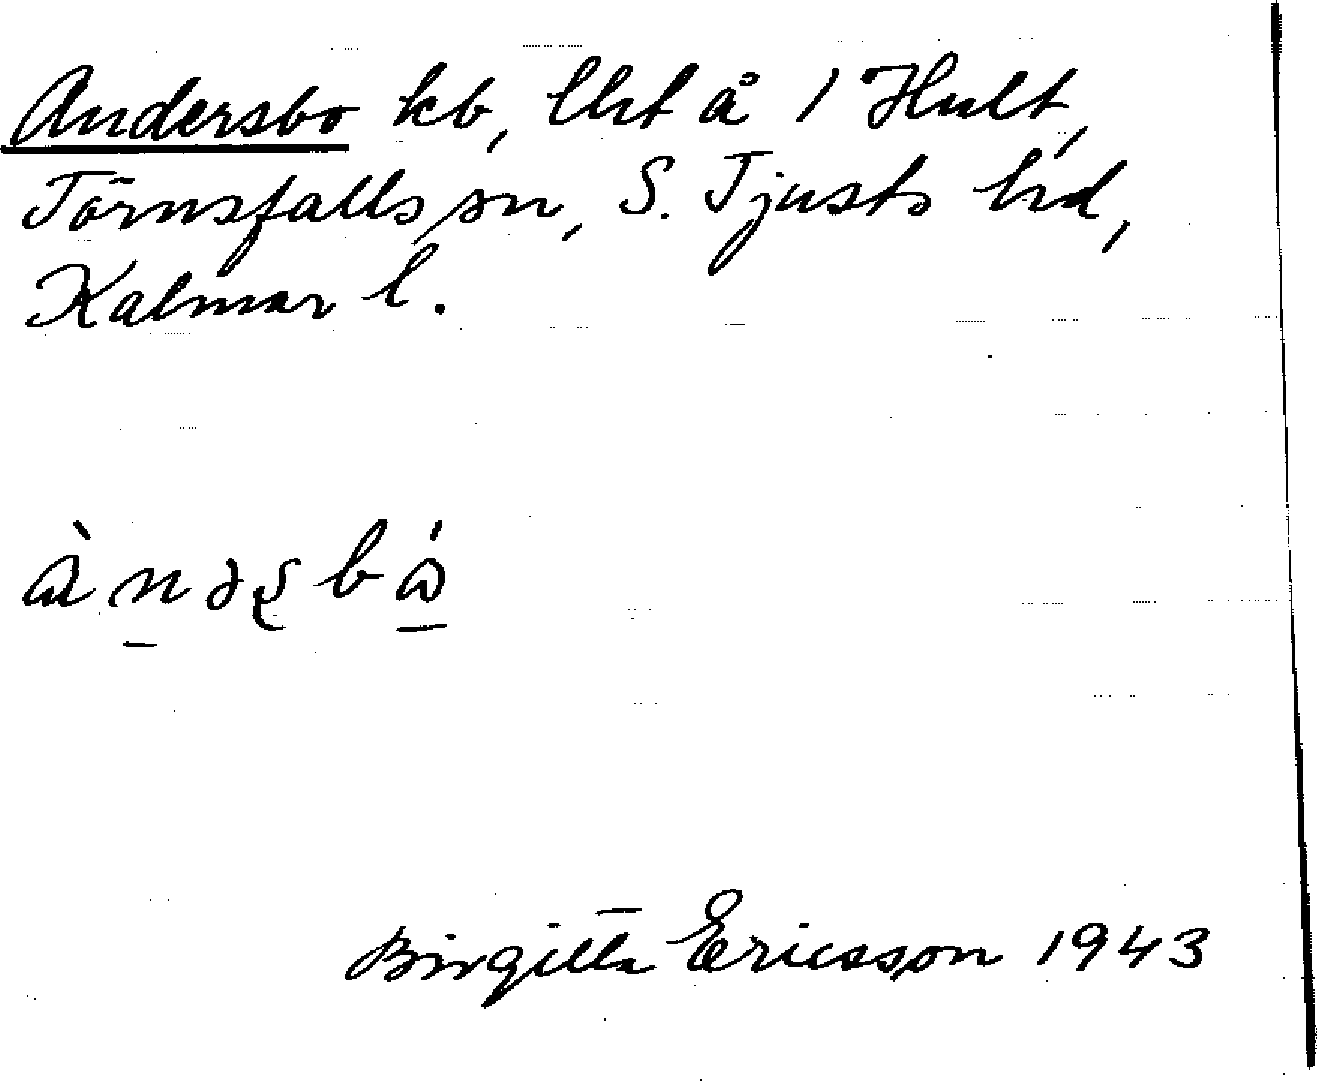 Andersbo kb, lht å 1 Hult,
Törnsfalls sn, S. Tjusts hd,
Kalmar l.
Birgitta Ericsson 1943